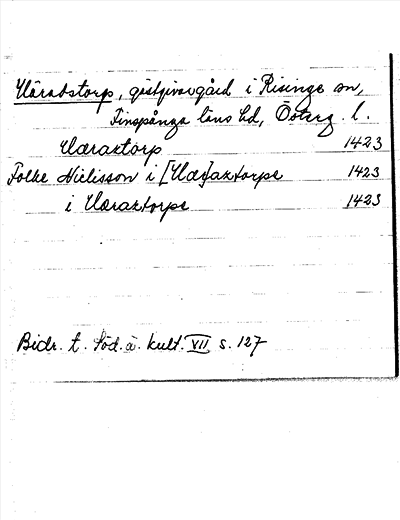 Väradstorp, gästgivargård i Risinge sn,
Finspånga läns hd, Österg. l.
Væraxtorp 1423
Folke Nielisson i [Væ]axtorpe 1423
i Væraxtorpe 1423
Bidr. t. Söd. ä. kult. VII s. 127